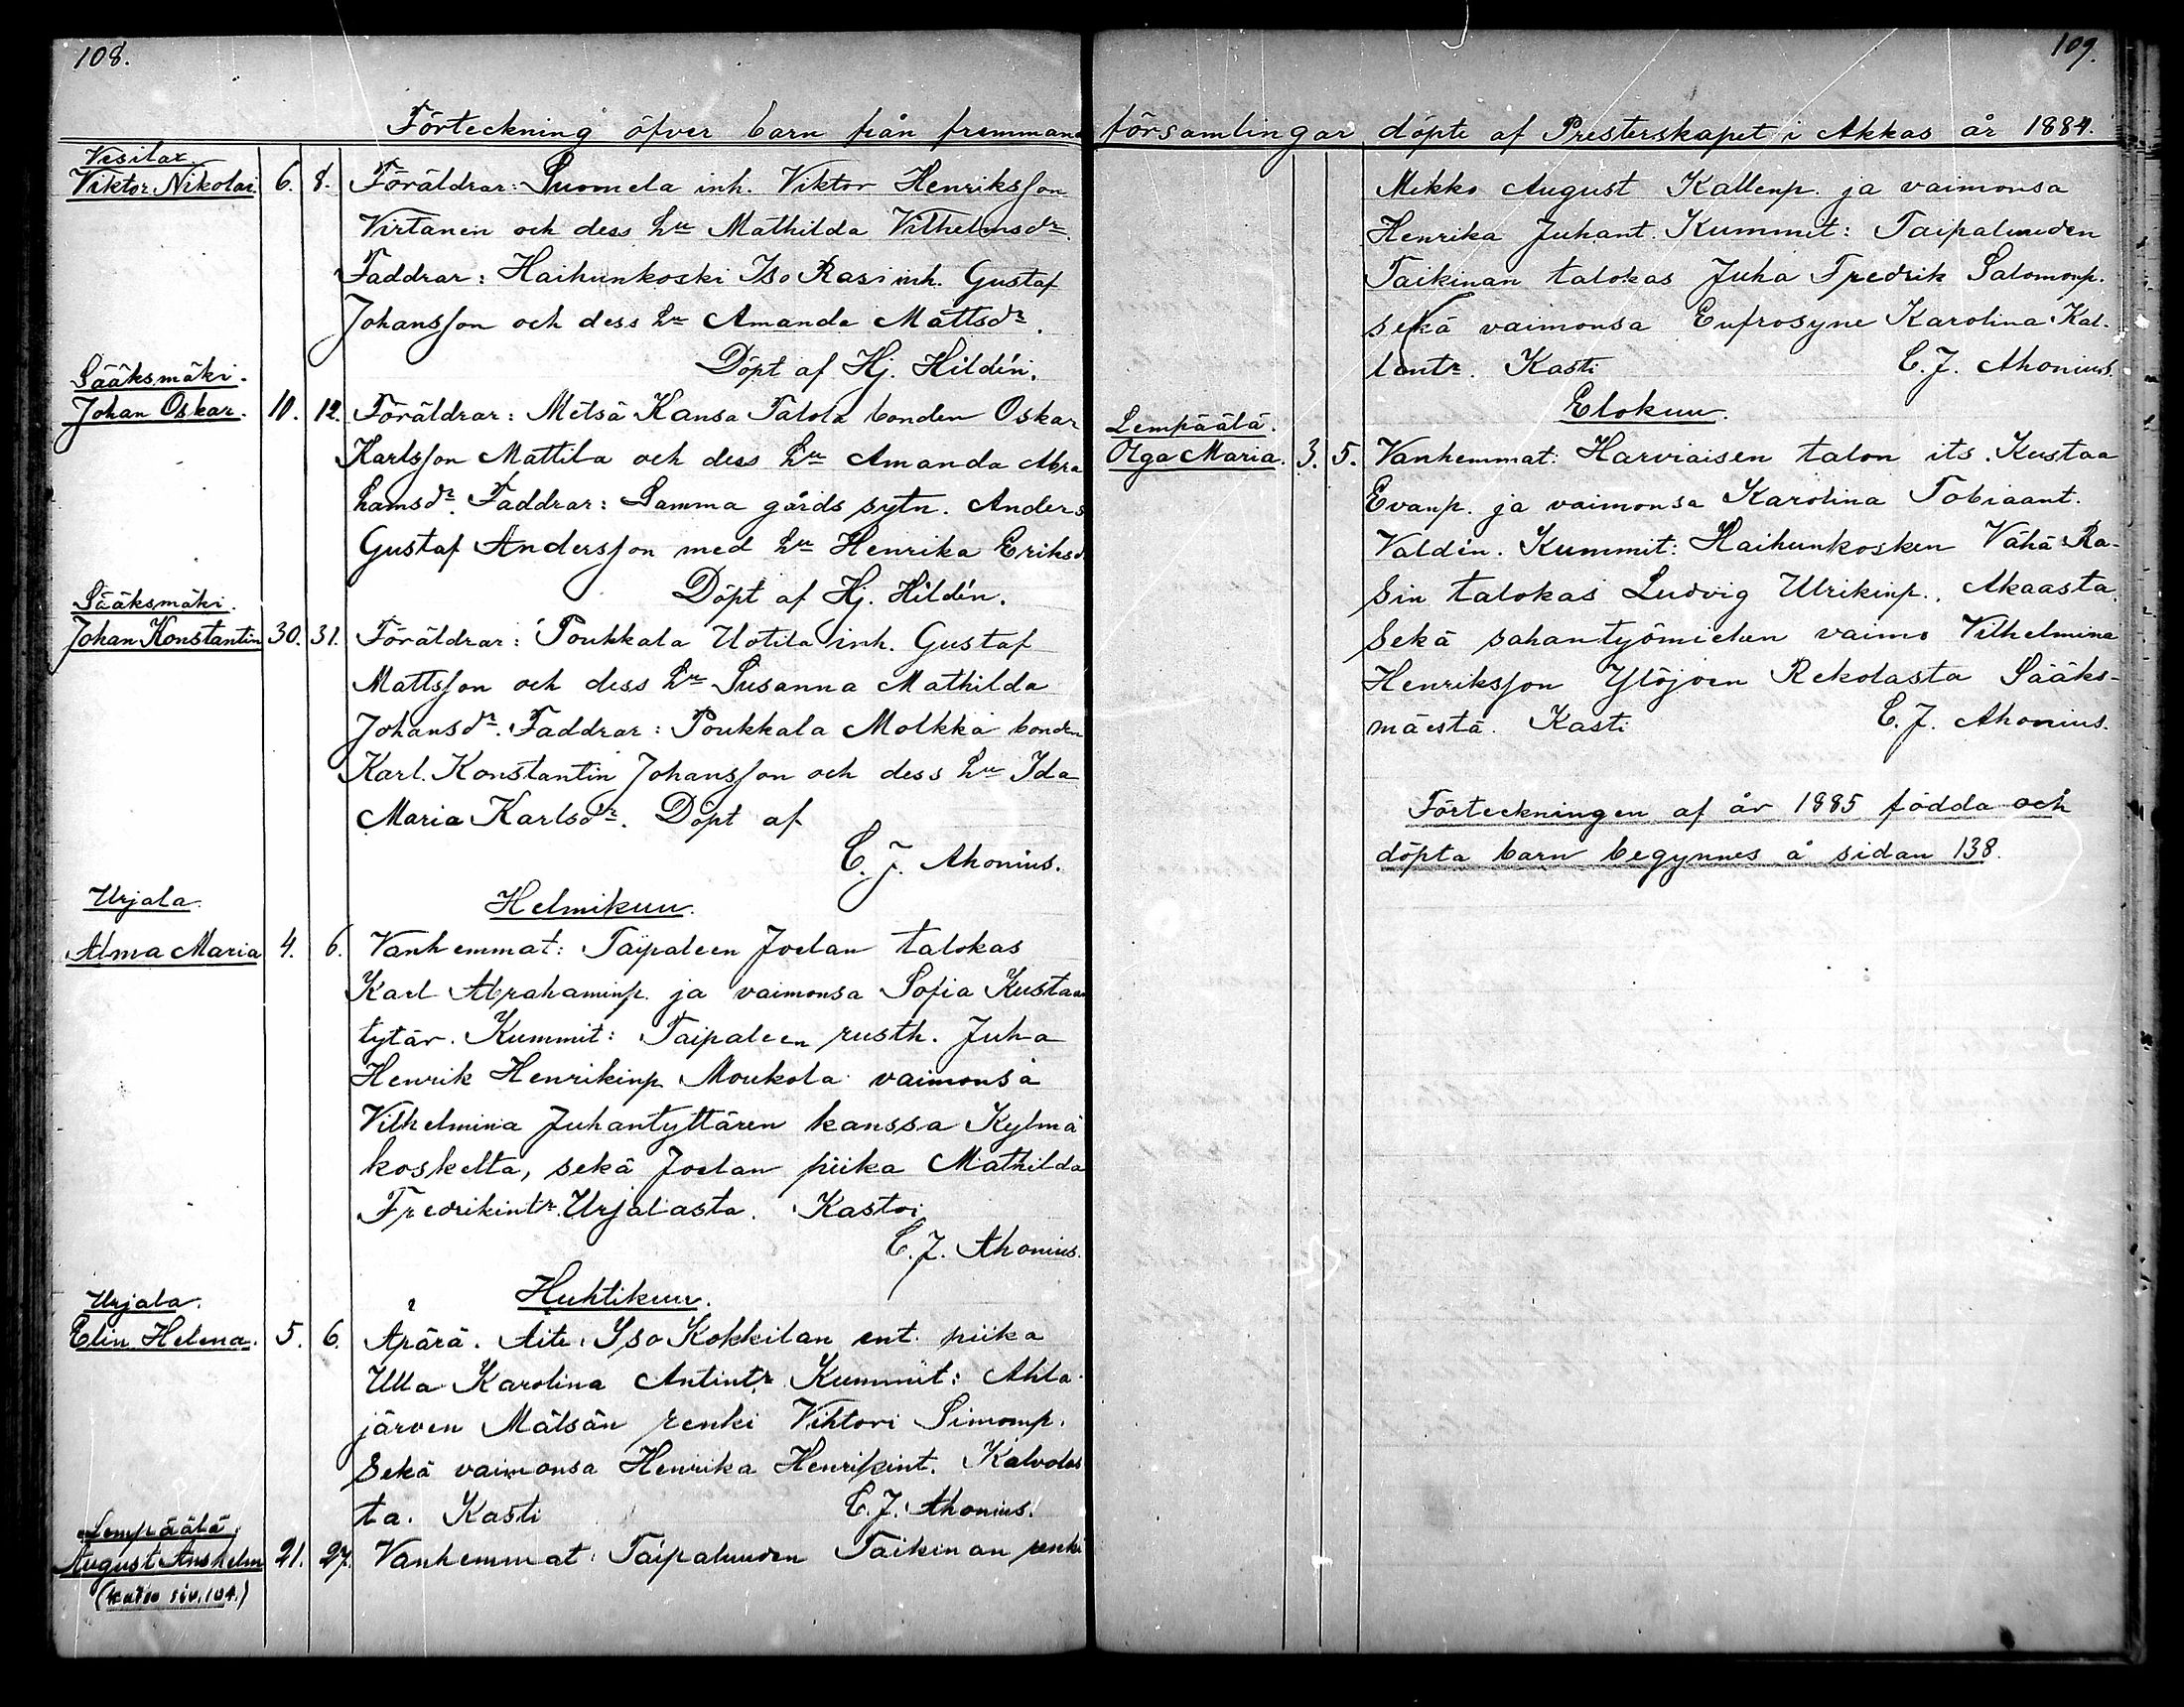 108.
109.
Förteckning öfver barn från främmande församlingar döpte af Presterskapet i Akkas år 1884.
Vesilax.
Viktor Nikolai 6. 8. Föräldrar: Suomela inh. Viktor Henriksson
Virtanen och dess hu Mathilda Vilhelmsdr.
Faddrar: Haihunkoski Iso Rasi inh. Gustaf
Johansson och dess hu Amanda Mattsdr.
Döpt af Hj. Hildén.
Sääksmäki.
Johan Oskar. 10. 12. Föräldrar: Metsä Kansa Talola bonden Oskar
Karlsson Mattila och dess hu Amanda Abra
hamsdr. Faddrar: Samma gårds sytn. Anders
Gustaf Andersson med hu Henrika Eriksd
Döpt af Hj. Hildén.
Sääksmäki.
Johan Konstantin 30. 31. Föräldrar: Poukkala Uotila inh. Gustaf
Mattsson och dess hu Susanna Mathilda
Johansdr. Faddrar: Poukkala Molkka bonden
Karl Konstantin Johansson och dess hu Ida
Maria Karlsdr. Döpt af
C. J. Ahonius.
Urjala.
Helmikuu.
Alma Maria 4. 6. Vanhemmat: Taipaleen Joelan talokas
Karl Abrahaminp. ja vaimonsa Sofia Kustaan
tytär. Kummit: Taipaleen rusth. Juha
Henrik Henrikinp Moukola vaimonsa
Vilhelmina Juhantyttären kanssa Kylmä
koskelta, sekä Joelan piika Mathilda
Fredrikintr. Urjalasta. Kastoi
C. J. Ahonius.
Urjala.
Huhtikuu.
Elin Helena. 5. 6. Äpärä. Äiti: Iso Kokkilan ent. piika
Ulla Karolina Antintr. Kummit: Ahla
järven Mälsän renki Vihtori Simonp.
Sekä vaimonsa Henrika Henrikint. Kalvolas
ta. Kasti C. J. Ahonius.
Lempäälä.
August Anshelm 21. 27. Vanhemmat: Taipaluuden Taikinan renki
(katso siv. 104.)
Mikko August Kallenp. ja vaimonsa
Henrika Juhant. Kummit: Taipaluuden
Taikinan talokas Juha Fredrik Salomonp.
sekä vaimonsa Eufrosyne Karolina Kal-
lentr. Kasti C. J. Ahonius.
Elokuu.
Lempäälä.
Olga Maria. 3. 5. Vanhemmat: Harviaisen talon its. Kustaa
Evanp. ja vaimonsa Karolina Tobiaant.
Valdén. Kummit: Haihunkosken Vähä Ra-
sin talokas Ludvig Ulrikinp. Akaasta.
Sekä sahantyömiehen vaimo Vilhelmina
Henriksson Ylöjoen Rekolasta Sääks-
mäestä. Kasti C. J. Ahonius.
Förteckningen af år 1885 födda och
döpta barn begynnes å sidan 138.